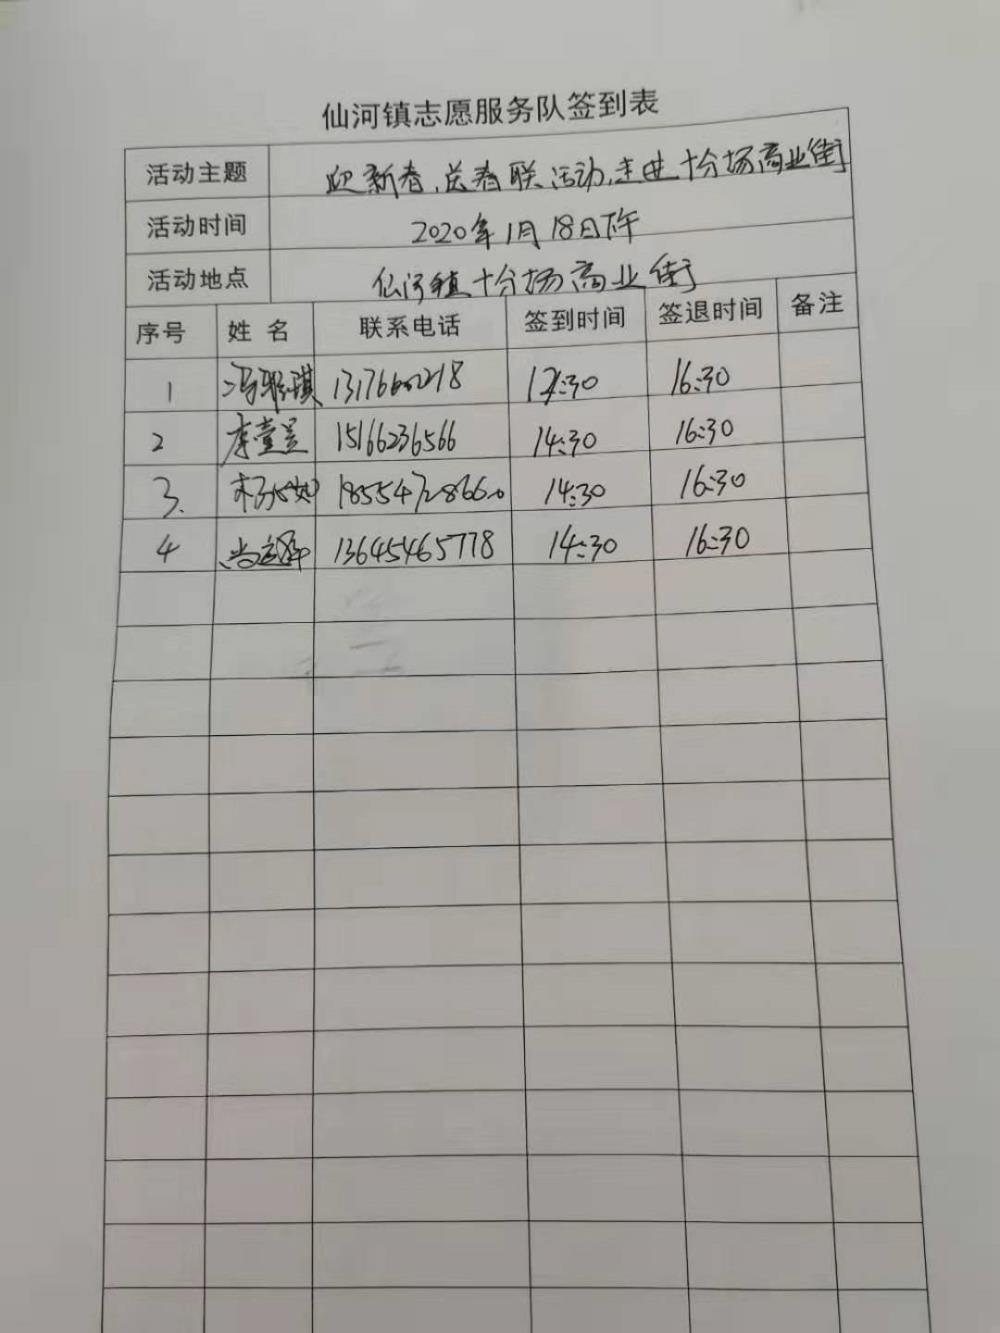 仙河镇志愿服务队签到表
活动主题 迎新春,送春联活动,走进十分场商业街
活动时间 2020年1月18日下午
活动地点 仙河镇十分场商业街
序号 姓名 联系电话 签到时间 签退时间 备注
1 冯雅琪 16:30
2 15166236566 14:30 16:30
3. 14:30 16:30
4 13645465778 14:30 16:30